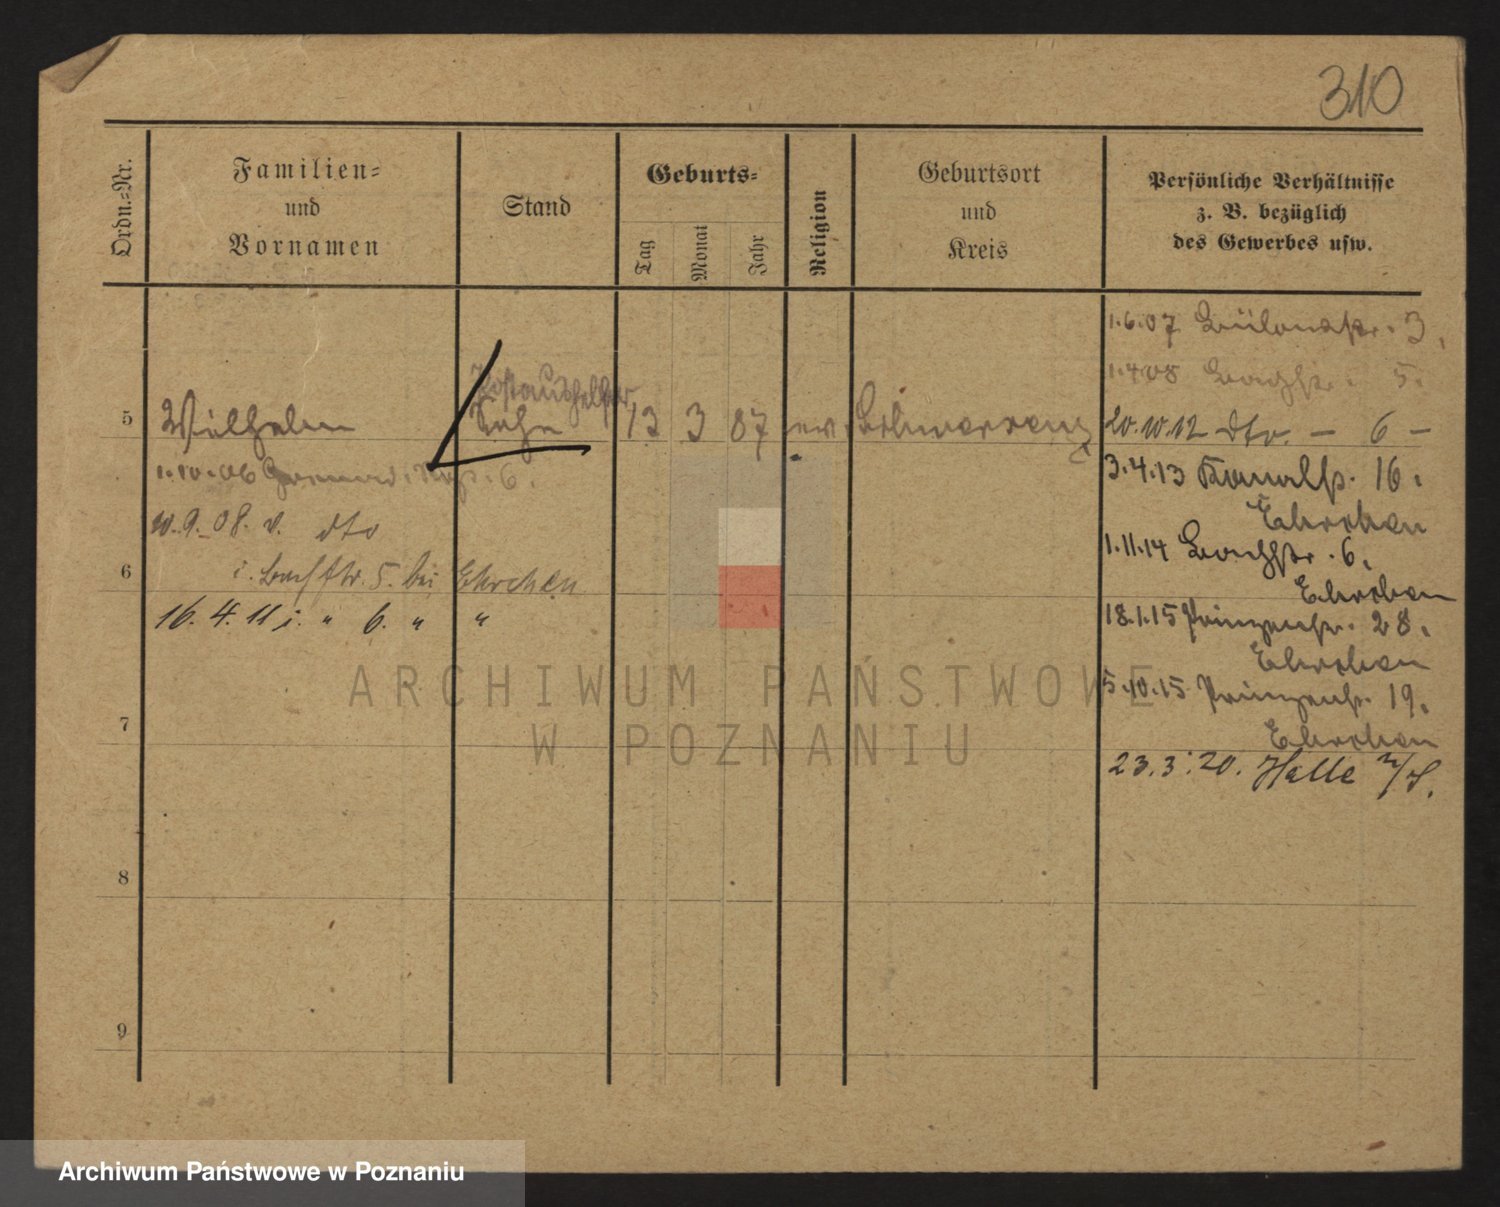 310
Ordn.-Nr.
Familien-
und
Vornamen
Stand
Geburts-
Tag
Monat
Jahr
Religion
Geburtsort
und
Kreis
Persönliche Verhältnisse
z. B. bezüglich
des Gewerbes usw.
1.6.07 Bülowstr. 3,
1.4.08 Bachstr. 5.
Postaushelfer
5 Wilhelm Sohn 13 3 87 ev. Schwersenz 20.10.12 dto. – 6 –
1.10.06 6. 3.4.13 Kanalstr. 16.
Ehrchen
10.9.08. v. dto
1.11.14 Bachstr. 6.
6 i. Bachstr. 5. bei Ehrchen
Ehrchen
16.4.11 i. " 6. " "
18.1.15 Prinzenstr. 28.
Ehrchen
5.10.15 Prinzenstr. 19.
7
Ehrchen
23.3.20. Halle a/S.
8
9
ARCHIWUM PAŃSTWOWE
W POZNANIU
Archiwum Państwowe w Poznaniu